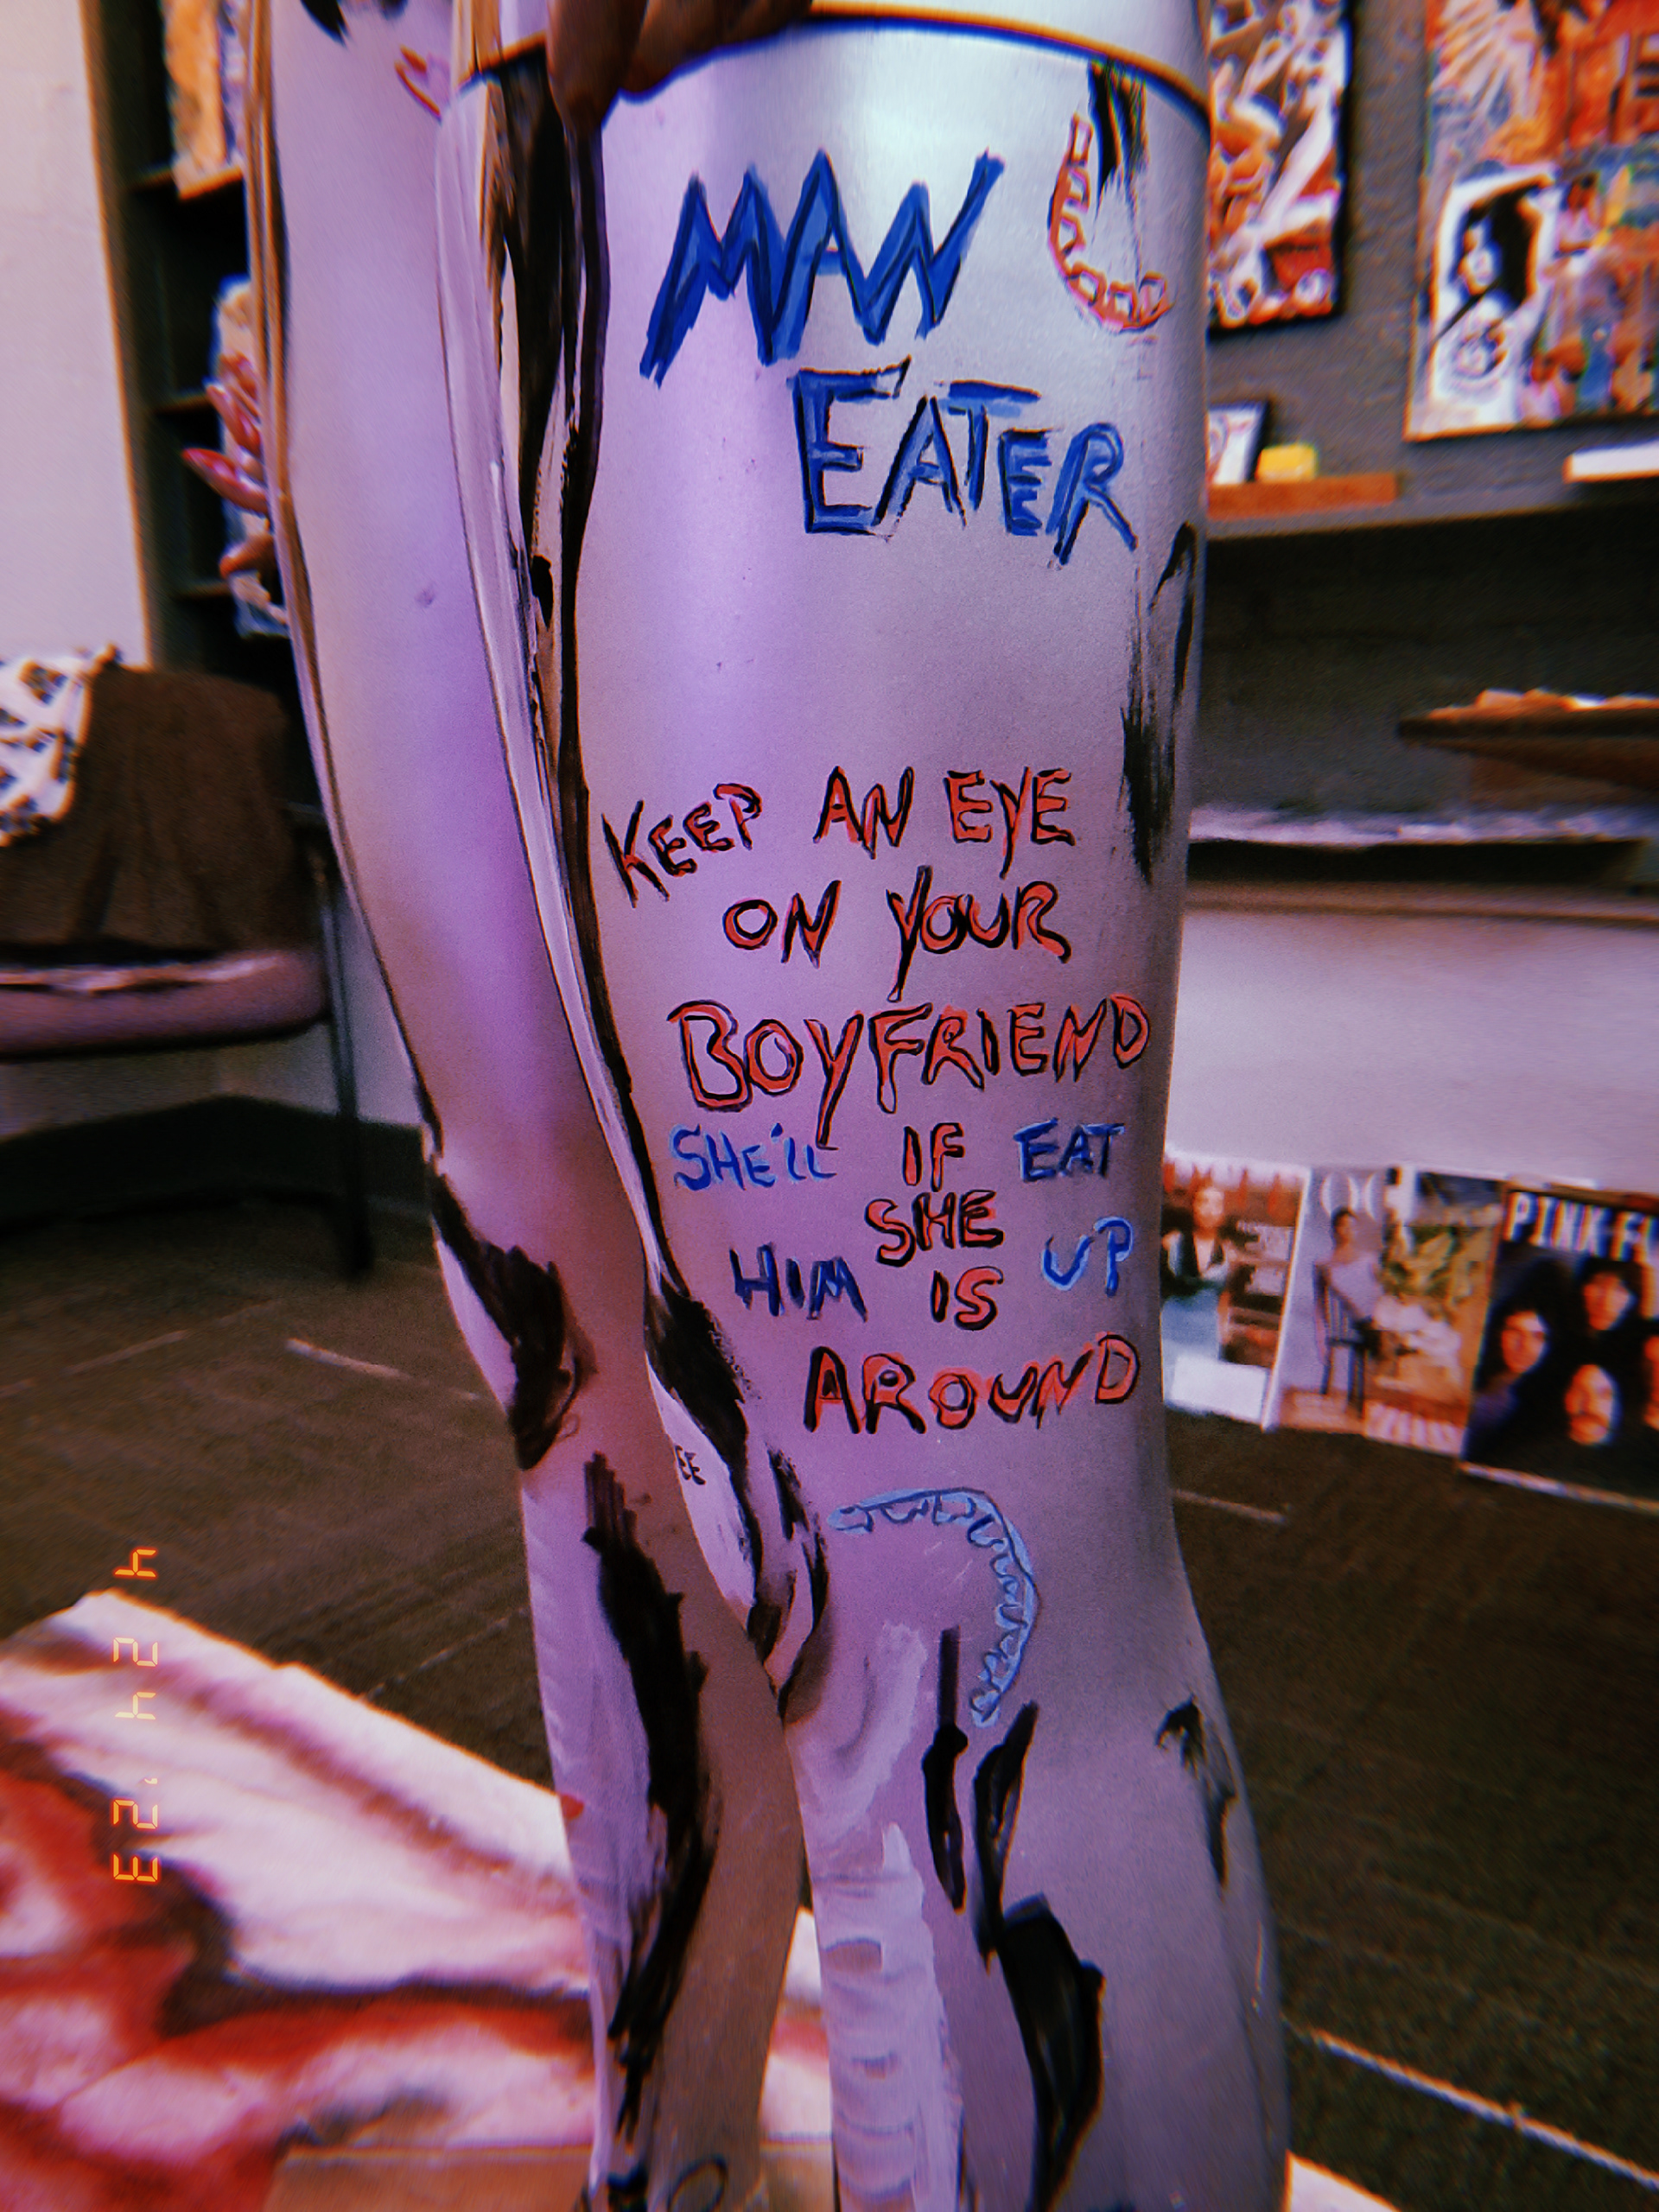 MAN
EATER
KEEP AN EYE
ON YOUR
BOYFRIEND
SHE'LL IF EAT
SHE
HIM IS UP
AROUND
EE
PINK F
4 24 '23